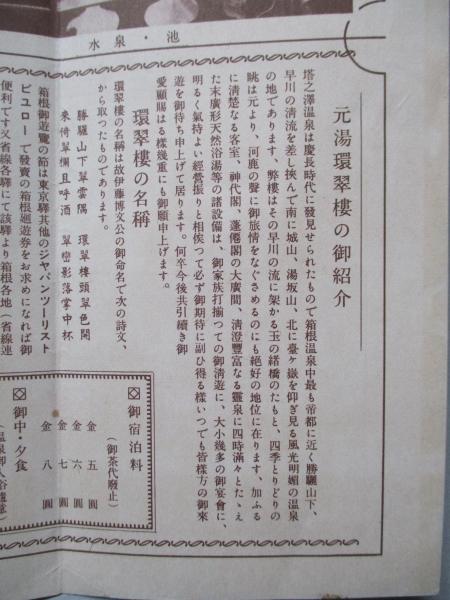 池・泉水
元湯環翠樓の御紹介
塔之澤溫泉は慶長時代に發見せられたもので箱根溫泉中最も帝都に近く勝驪山下、
早川の淸流を差し挾んで南に城山、湯坂山、北に臺ヶ嶽を仰ぎ見る風光明媚の溫泉
の地であります、弊樓はその早川の流に架かる玉の緖橋のたもと、四季とりどりの
眺は元より、河鹿の聲に御旅情をなぐさめるのにも絶好の地位に在ります、加ふる
に淸楚なる客室、神代閣、蓬僊閣の大廣間、淸澄豐富なる靈泉に四時滿々とたゝえ
た末廣形天然浴湯等の諸設備は、御家族打揃つての御淸遊に、大小幾多の御宴會に、
明るく氣持よい經營振りと相俟つて必ず御期待に副ひ得る樣いつでも皆樣方の御來
遊を御待ち申上げて居ります。何卒今後共引續き御
愛顧賜はる樣幾重にも御願申上げます。
環翠樓の名稱
環翠樓の名稱は故伊藤博文公の御命名で次の詩文、
から取つたものであります。
勝驪山下翠雲隅　環翠樓頭翠色開
來倚翠欄且呼酒　翠巒影落掌中杯
箱根御遊覽の節は東京驛其他のジャパンツーリスト
ビユローで發賣の箱根廻遊券をお求めになれば御
便利です又省線各驛にて該驛より箱根各地（省線連
御宿泊料
（御茶代廢止）
金五圓
金六圓
金七圓
金八圓
御中・夕食
（溫泉御入浴隨意）